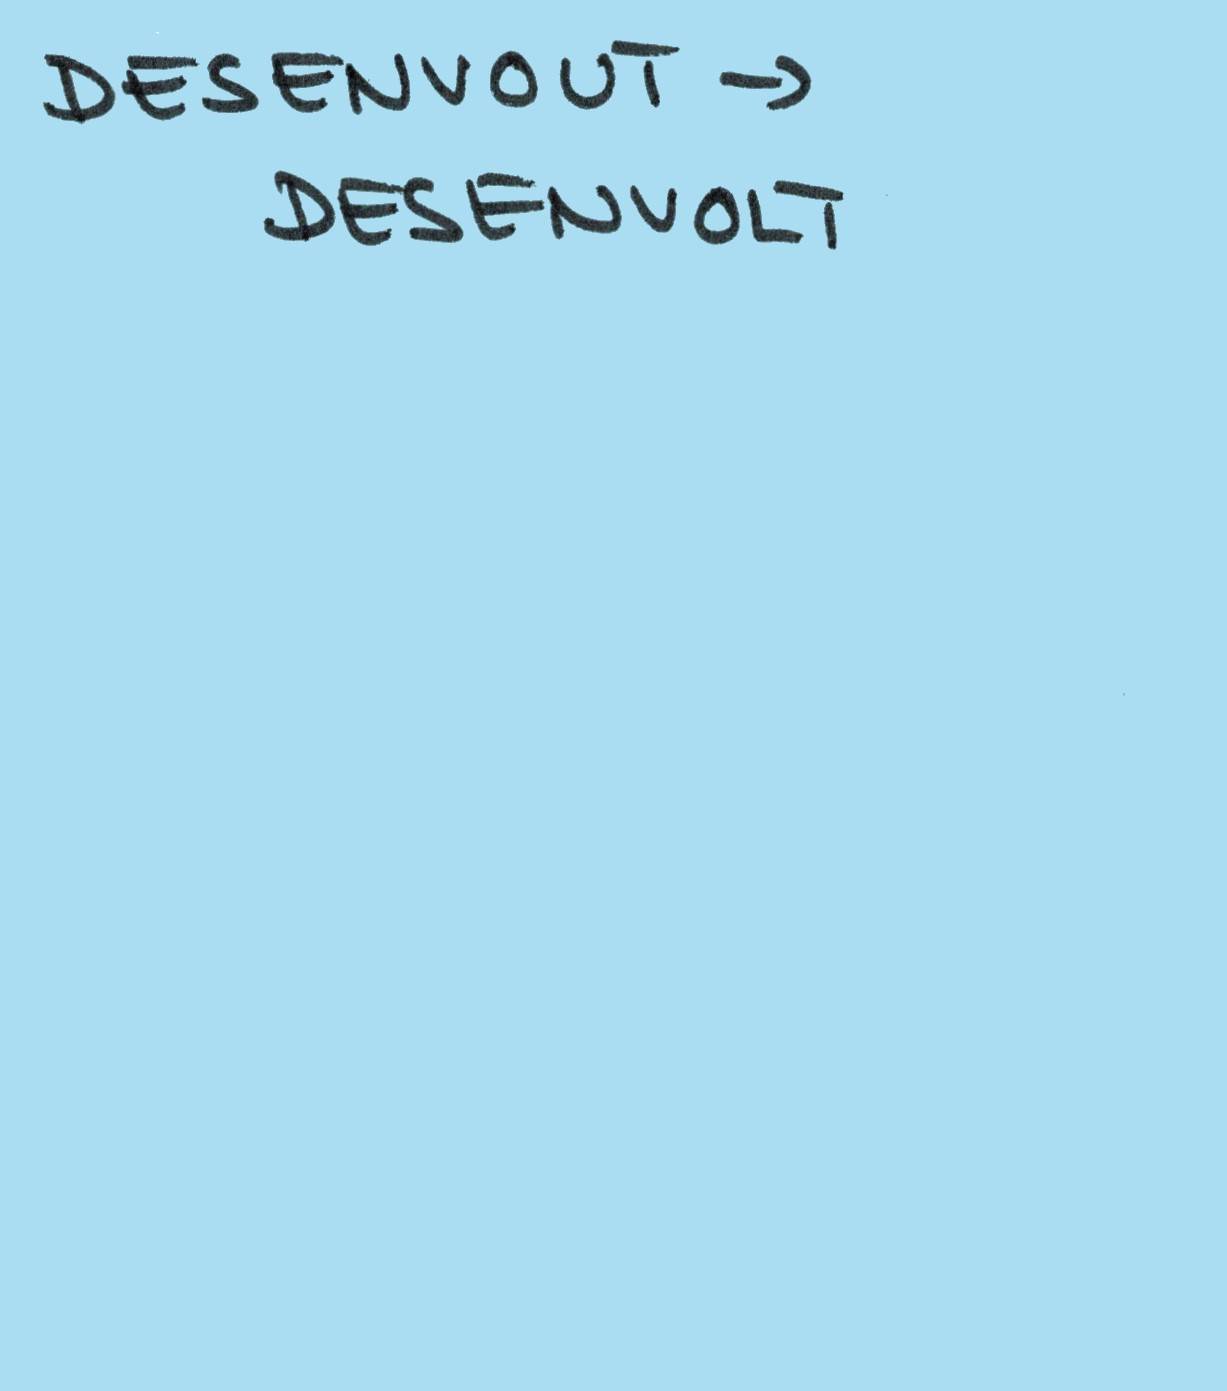 DESENVOUT →
DESENVOLT